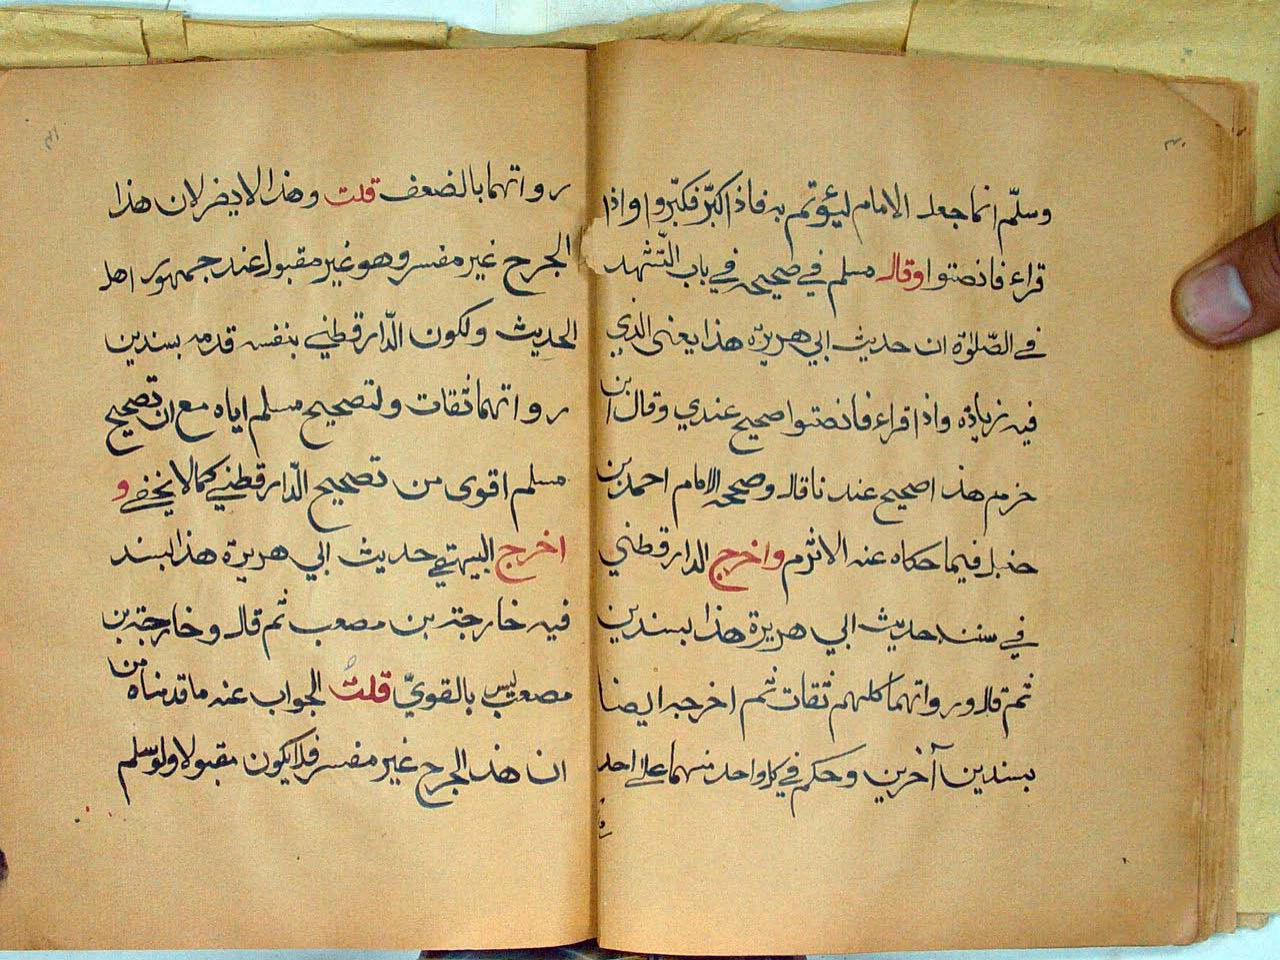 ٣٠
وسلّم انما جعل الامام ليؤتم به فاذا كبّر فكبّروا واذا
قراء فانصتوا وقال مسلم في صحيحه في باب التّشهد
في الصّلوٰة ان حديث ابي هريرة هذا يعنى الذي
فيه زيادة واذا قراء فانصتوا صحيح عندي وقال ابن
حزم هذا صحيح عندنا قال وصححه الامام احمد بن
حنبل فيما حكاه عنه الاثرم واخرج الدارقطني
في سننه حديث ابي هريرة هذا بسندين
ثم قال ورواتهما كلهم ثقات ثم اخرجه ايضا
بسندين آخرين وحكم في كل واحد منهما على احد
٣١
رواتهما بالضعف قلت وهذا لا يضر لان هذا
الجرح غير مفسر وهو غير مقبول عند جمهور اهل
الحديث ولكون الدّارقطني بنفسه قدمه بسندين
رواتهما ثقات ولتصحيح مسلم اياه مع ان تصحيح
مسلم اقوى من تصحيح الدّارقطني كما لا يخفى و
اخرج البيهقي حديث ابي هريرة هذا بسند
فيه خارجة بن مصعب ثم قال وخارجة بن
مصعب ليس بالقويّ قلتُ الجواب عنه ما قدمناه من
ان هذا الجرح غير مفسر فلا يكون مقبولا ولو سلم